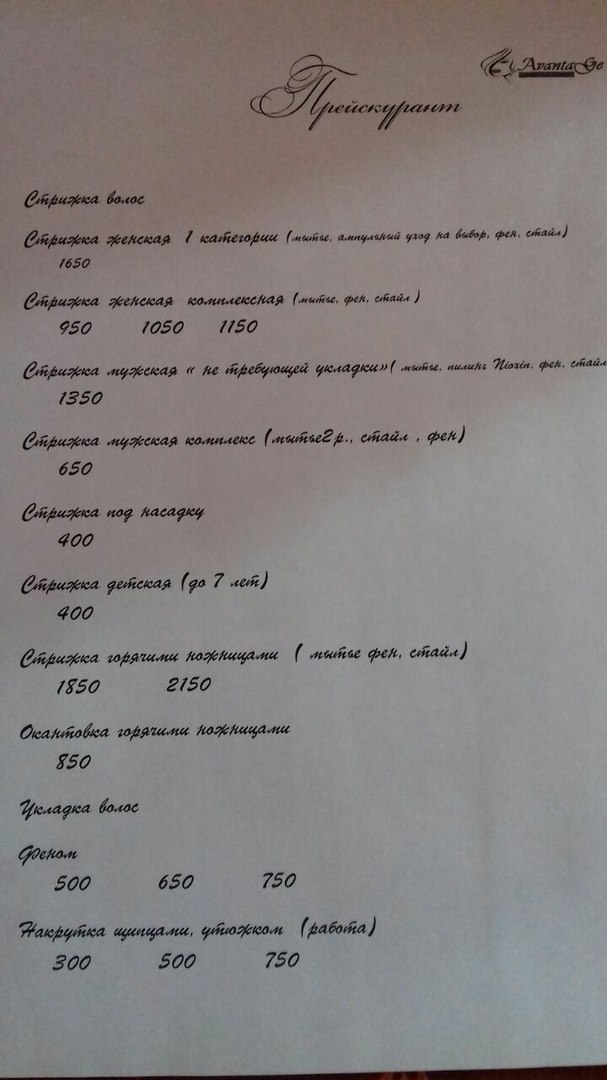 AvantaGe
Прейскурант
Стрижка волос
Стрижка женская 1 категории (мытье, ампульный уход на выбор, фен, стайл)
1650
Стрижка женская комплексная (мытье, фен, стайл )
950 1050 1150
Стрижка мужская « не требующей укладки»( мытье, пилинг Nioxin, фен, стайл
1350
Стрижка мужская комплекс (мытье2 р., стайл , фен)
650
Стрижка под насадку
400
Стрижка детская (до 7 лет)
400
Стрижка горячими ножницами ( мытье фен, стайл)
1850 2150
Окантовка горячими ножницами
850
Укладка волос
Феном
500 650 750
Накрутка щипцами, утюжком (работа)
300 500 750